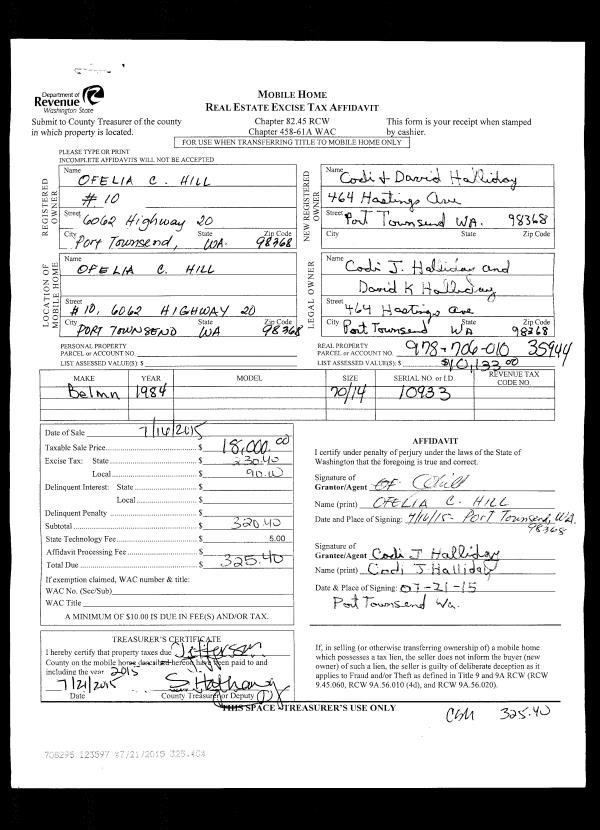 Department of
Revenue
Washington State
MOBILE HOME
REAL ESTATE EXCISE TAX AFFIDAVIT
Submit to County Treasurer of the county
in which property is located.
Chapter 82.45 RCW
Chapter 458-61A WAC
This form is your receipt when stamped
by cashier.
FOR USE WHEN TRANSFERRING TITLE TO MOBILE HOME ONLY
PLEASE TYPE OR PRINT
INCOMPLETE AFFIDAVITS WILL NOT BE ACCEPTED
REGISTERED OWNER
Name
OFELIA C. HILL
# 10
Street 6062 Highway 20
City State Zip Code
Port Townsend, WA. 98368
NEW REGISTERED OWNER
Name Codi & David Halliday
464 Hastings Ave
Street Port Townsend WA. 98368
City State Zip Code
LOCATION OF MOBILE HOME
Name
OFELIA C. HILL
Street
# 10, 6062 HIGHWAY 20
City State Zip Code
PORT TOWNSEND WA 98368
LEGAL OWNER
Name
Codi J. Halliday and
David K Halliday
Street 464 Hastings Ave
City State Zip Code
Port Townsend WA 98368
PERSONAL PROPERTY
PARCEL or ACCOUNT NO.
LIST ASSESSED VALUE(S): $
REAL PROPERTY
PARCEL or ACCOUNT NO. 978-706-010 35944
LIST ASSESSED VALUE(S): $ $10,133.00
MAKE YEAR MODEL SIZE SERIAL NO. or I.D. REVENUE TAX CODE NO.
Belmn 1984 70/14 10933
Date of Sale 7/16/2015
Taxable Sale Price $ 18,000.00
Excise Tax: State $ 230.40
Local $ 90.00
Delinquent Interest: State $
Local $
Delinquent Penalty $
Subtotal $ 320.40
State Technology Fee $ 5.00
Affidavit Processing Fee $
Total Due $ 325.40
If exemption claimed, WAC number & title:
WAC No. (Sec/Sub)
WAC Title
A MINIMUM OF $10.00 IS DUE IN FEE(S) AND/OR TAX.
AFFIDAVIT
I certify under penalty of perjury under the laws of the State of
Washington that the foregoing is true and correct.
Signature of
Grantor/Agent
Name (print) OFELIA C. HILL
Date and Place of Signing: 7/16/15- Port Townsend, WA.
98368
Signature of
Grantee/Agent Codi J Halliday
Name (print) Codi J Halliday
Date & Place of Signing: 07-21-15
Port Townsend Wa.
TREASURER'S CERTIFICATE
I hereby certify that property taxes due Jefferson
County on the mobile home described hereon have been paid to and
including the year 2015
7/21/2015
Date County Treasurer or Deputy
If, in selling (or otherwise transferring ownership of) a mobile home
which possesses a tax lien, the seller does not inform the buyer (new
owner) of such a lien, the seller is guilty of deliberate deception as it
applies to Fraud and/or Theft as defined in Title 9 and 9A RCW (RCW
9.45.060, RCW 9A.56.010 (4d), and RCW 9A.56.020).
THIS SPACE TREASURER'S USE ONLY
325.40
708295 123597 07/21/2015 325.40